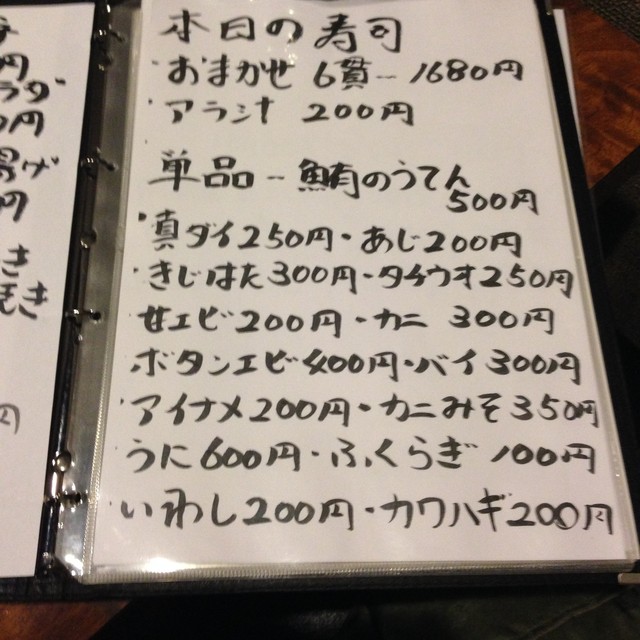 本日の寿司
・おまかせ 6貫‐‐1680円
・アラ汁 200円
単品‐鮪のうてん
500円
・真ダイ250円・あじ200円
・きじはた300円・タチウオ250円
・甘エビ200円・カニ 300円
・ボタンエビ400円・バイ300円
・アイナメ200円・カニみそ350円
・うに600円・ふくらぎ 100円
・いわし200円・カワハギ200円